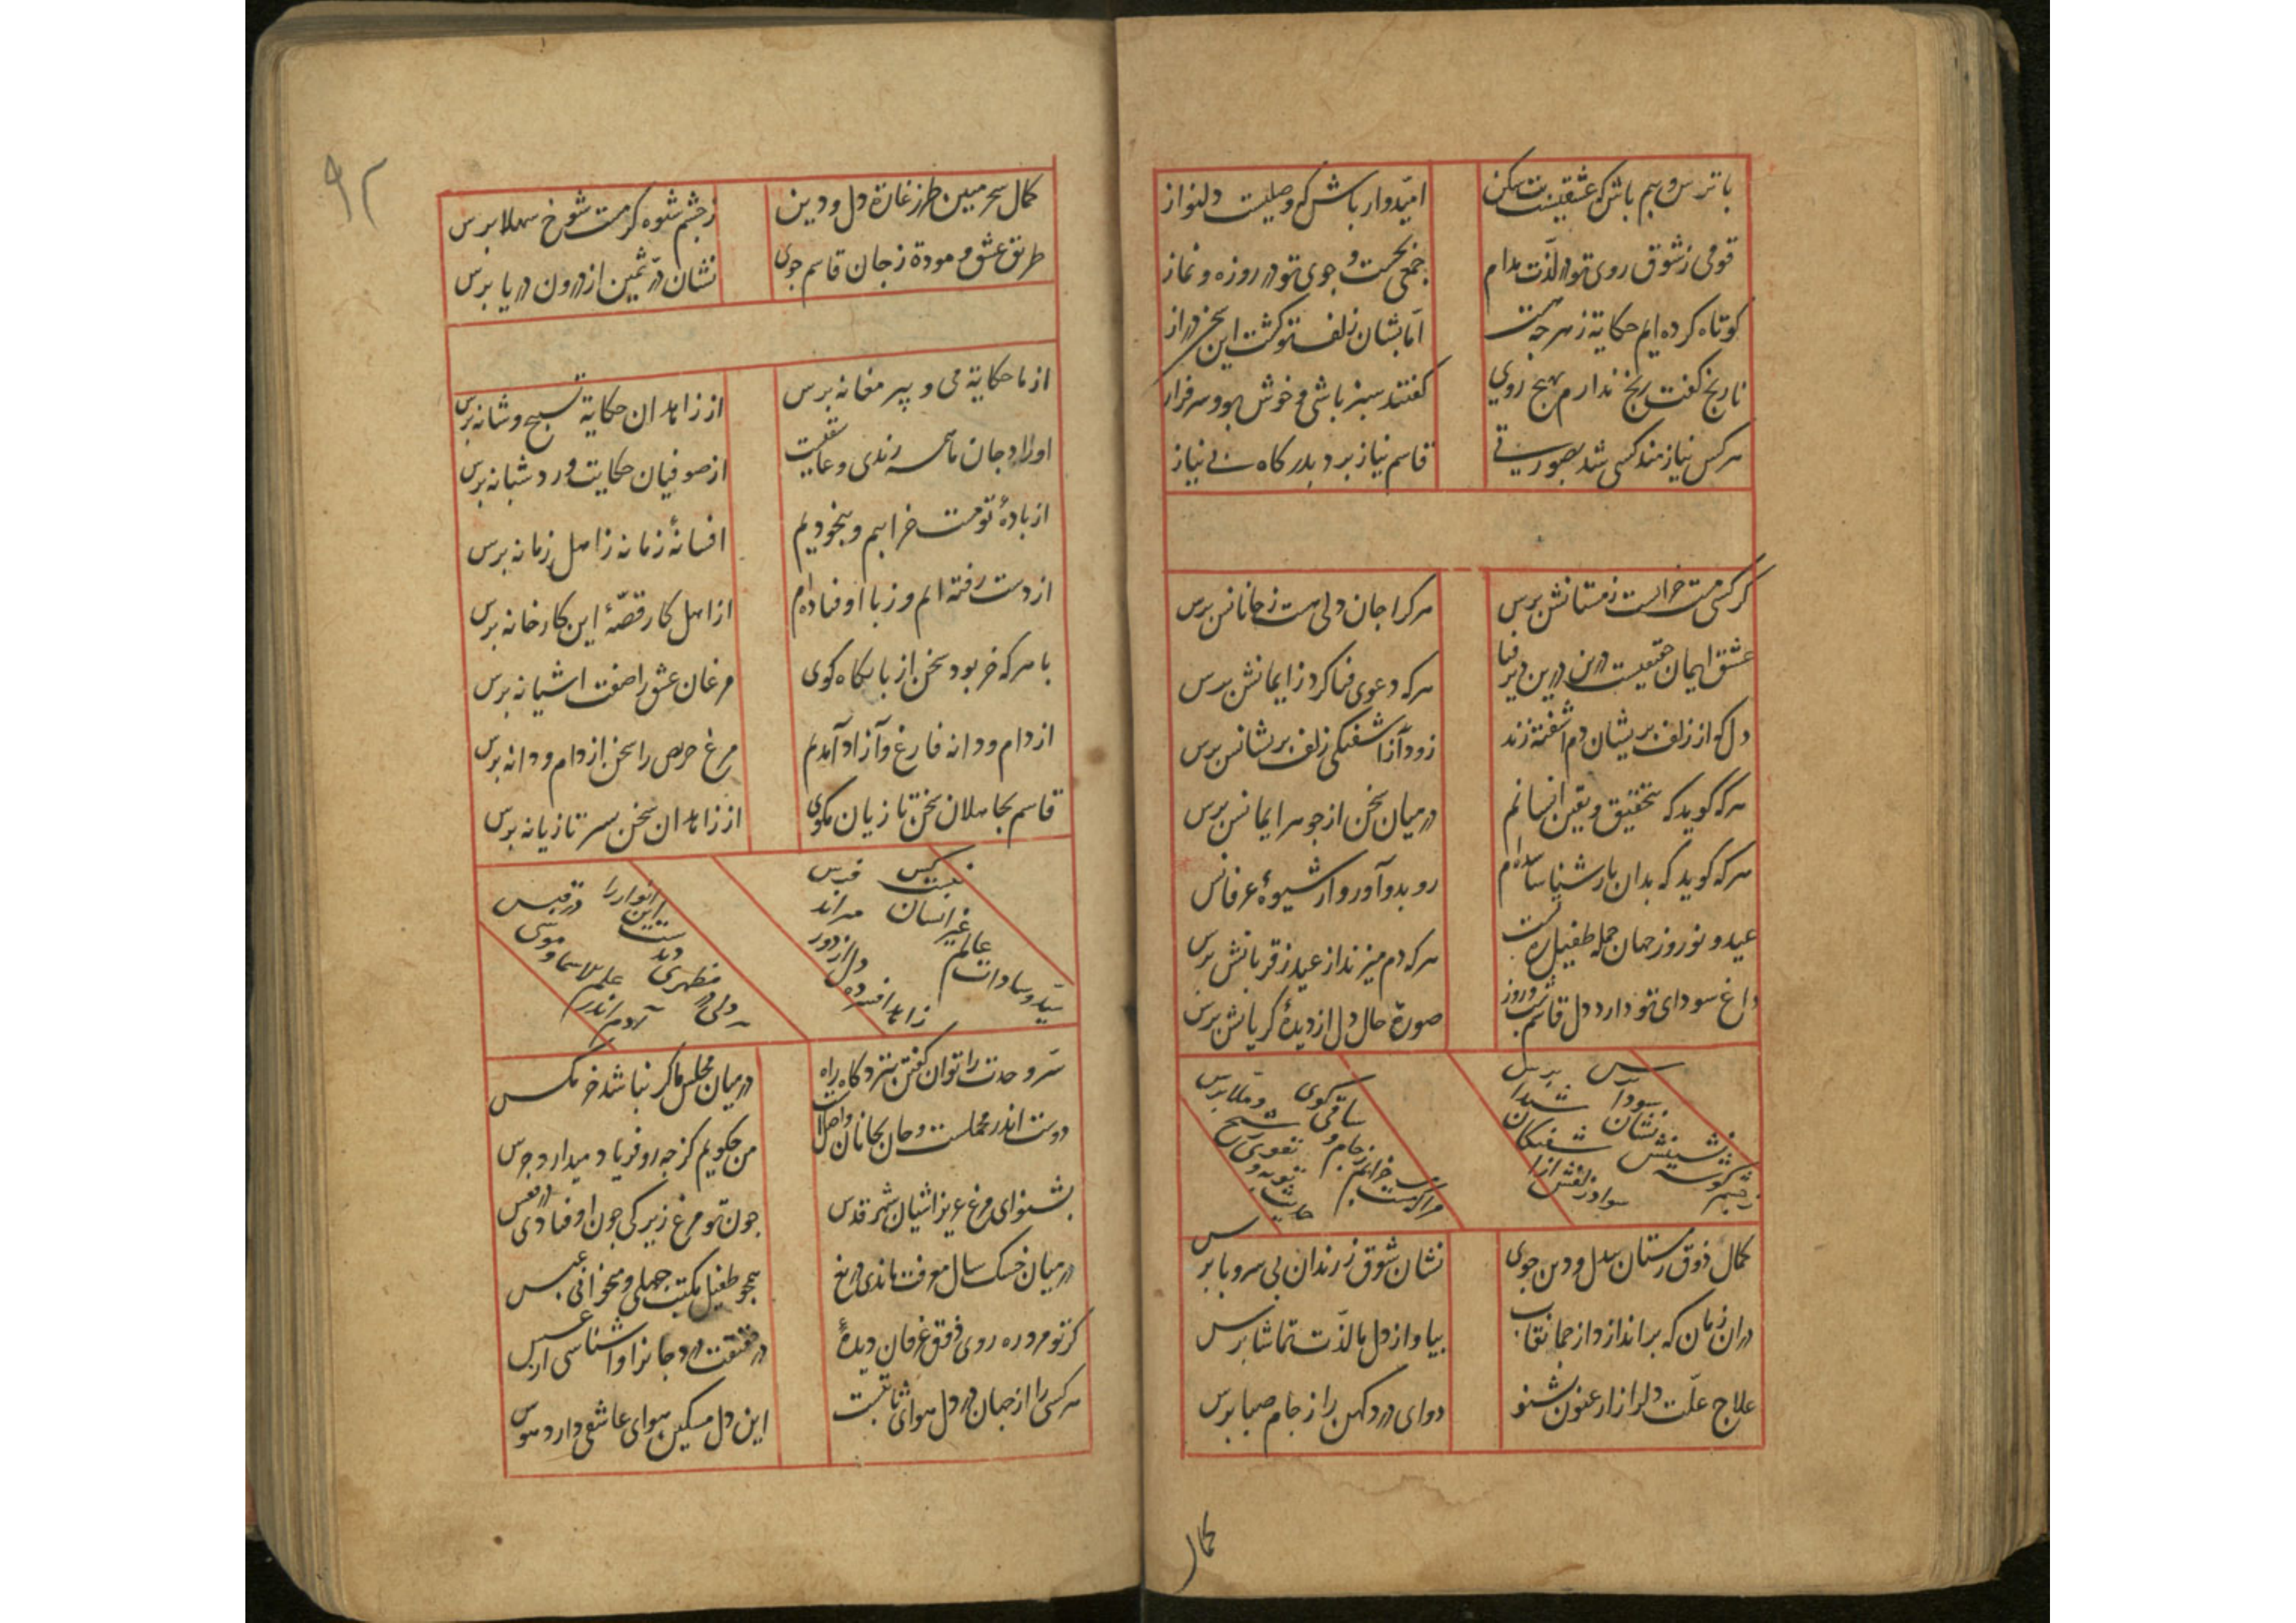 با ترس و بیم باش که عشقیست
امیدوار باش که وصلیست دلنواز
قومی ز شوق روی تو در لذت مدام
جمعی بجست و جوی تو در روزه و نماز
کوتاه کرده ایم حکایة ز هر جهت
اما بشان زلف تو گشت این سخن دراز
نارنج گفت رنج ندارم بهیچ روی
گفتند سبز باشی و خوش بو و سرفراز
هر کس نیازمند کسی شد بصورتی
قاسم نیاز برد بدرگاه بی نیاز
گر کسی مست خرابست ز مستانش برس
هر کرا جان و دلی هست ز جانانش برس
عشق ایمان حقیقیست درین دیر فنا
هر که دعوی فنا کرد ز ایمانش برس
دل که از زلف پریشان دم آشفته زند
زود از آشفتگی زلف پریشانش برس
هر که گوید که بتحقیق و یقین انسانم
در میان سخن از جوهر ایمانش برس
هر که گوید که بدان یار شناسا شده‌ام
رو بدو آور و از شیوهٔ عرفانش
عید و نوروز جهان جمله طفیل ره تست
هر که دم میزند از عید ز قربانش برس
داغ سودای تو دارد دل قاسم شب و روز
صورة حال دل از دیدهٔ گریانش برس
ز چشم گوشه نشینش نشان سودا برس
سواد زلفش از آشفتگان شیدا برس
مرا که مست خرابم ز جام و ساقی گوی
حدیث توبه و تقوی ز شیخ و ملا برس
کمال ذوق ز مستان بیدل و دین جوی
نشان شوق ز رندان بی سر و پا برس
در ان زمان که براندازد از جمال نقاب
بیا و از دل ما لذت تماشا برس
علاج علت دل را ز ارغنون بشنو
دوای درد کهن را ز جام صهبا برس
کمال
۹۲
کمال سحر مبین طرز غارة دل و دین
ز چشم شیوه گر مست شوخ شهلا برس
طریق عشق و مودة ز جان قاسم جوی
نشان در ثمین از درون دریا برس
از ما حکایة می و پیر مغانه برس
از زاهدان حکایة تسبیح و شانه برس
اوراد جان ما همه رندی و عاشقیست
از صوفیان حکایت ورد شبانه برس
از بادهٔ تو مست خرابیم و بیخودیم
افسانهٔ زمانه ز اهل زمانه برس
از دست رفته ایم و ز پا اوفتاده ام
از اهل کار قصهٔ این کارخانه برس
با هر که خر بود سخن از پایگاه کوی
مرغان عشق را صفت اشیانه برس
از دام و دانه فارغ و آزاد آمدیم
مرغ حریص را سخن از دام و دانه برس
قاسم بجاهلان سخن تازیان مکوی
از زاهدان سخن بسر تازیانه برس
سید و سادات عالم غیر انسان نیست کس
زاهد افسرده دل از دور میراند فرس
ولی در مظهری دید ست این انوار را
آدم اندر علم الاسما و موسی در قبس
سر وحدت را توان گفتن بنزد کاه راه
در میان مجلس ما گر نباشد خر مگس
دوست اندر محملست و جان بجانان واصل است
من چگویم کز چه رو فریاد میدارد جرس
بشنو ای مرغ عزیز اشیان شهر قدس
چون تو مرغ زیرکی چون اوفتادی در قفس
در میان خشک سال معرفت ماندی دریغ
همچو طفل مکتب جهلی و میخوانی عبس
گر تو مرد ره روی ذوق عرفان دیدهٔ
در حقیقت درد جانرا واشناسی از عسس
هر کسی را از جهان در دل هوای ثابتست
این دل مسکین هوای عاشقی دارد هوس